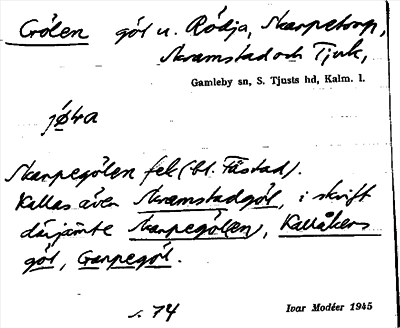 Crölen göl u. Rödja, Skarpetorp,
Skramstad och Tjuk,
Gamleby sn, S. Tjusts hd, Kalm. l.
Skarpegölen fel (bl. Fåstad).
Kallas även Skramstadgöl, i skrift
därjämte Skarpegöl(en), Kallåkers
göl, Garpegöl.
s. 74
Ivar Modéer 1945